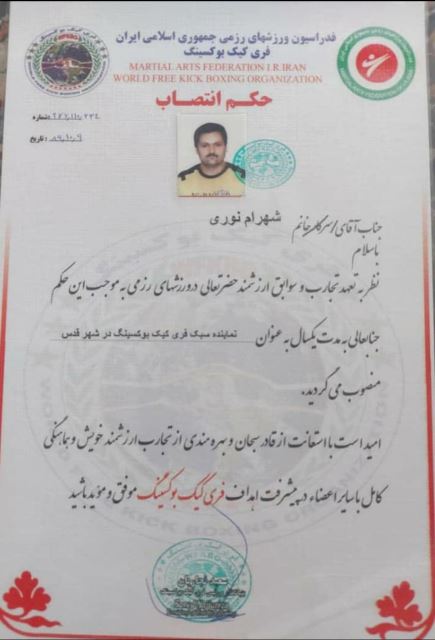 فدراسیون ورزشهای رزمی جمهوری اسلامی ایران
فری کیک بوکسینگ
MARTIAL ARTS FEDERATION I.R.IRAN
WORLD FREE KICK BOXING ORGANIZATION
حکم انتصاب
شماره:
تاریخ: ۸۹,۱۰,۹
جناب آقای/سرکار خانم شهرام نوری
با سلام
نظر به تعهد تجارب و سوابق ارزشمند حضرتعالی در ورزشهای رزمی به موجب این حکم
جنابعالی به مدت یکسال به عنوان نماینده سبک فری کیک بوکسینگ در شهر قدس
منصوب می گردید.
امید است با استعانت از قادر سبحان و بهره مندی از تجارب ارزشمند خویش و هماهنگی
کامل با سایر اعضاء در پیشرفت اهداف فری کیک بوکسینگ موفق و مؤید باشید